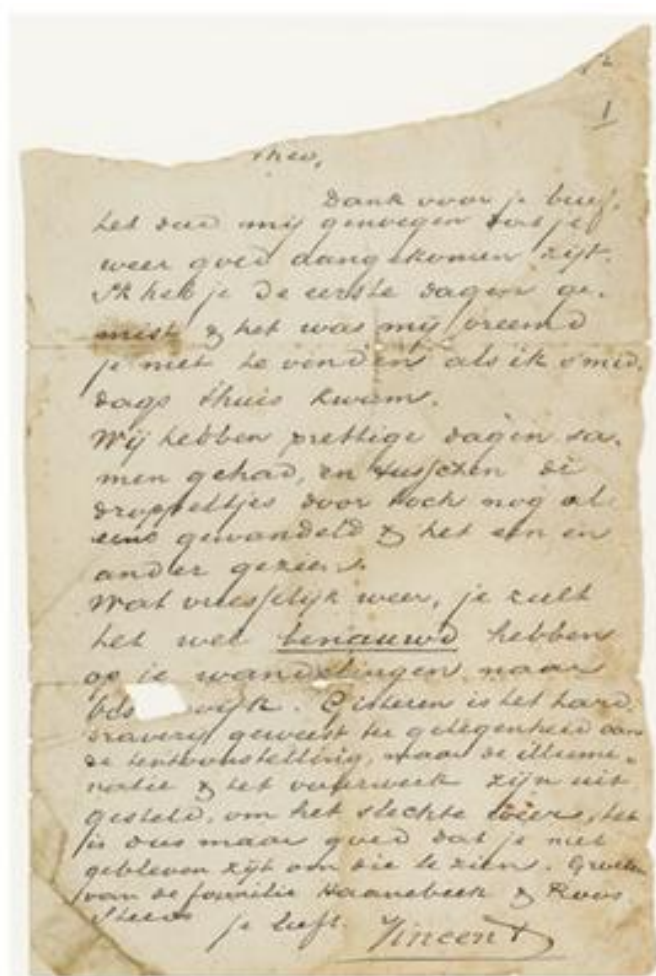 1
Theo,
Dank voor je brief,
het deed mij genoegen dat je
weer goed aangekomen zijt.
Ik heb je de eerste dagen ge-
mist & het was mij vreemd
je niet te vinden als ik s'mid-
dags t'huis kwam.
Wij hebben prettige dagen sa-
men gehad, en tusschen de
droppeltjes door toch nog al
eens gewandeld & het een en
ander gezien.
Wat vreesselijk weer, je zult
het wel benauwd hebben
op je wandelingen naar
wijk. Gisteren is het hard-
draverij geweest ter gelegenheid van
de tentoonstelling, maar de illumi-
natie & het vuurwerk zijn uit-
gesteld, om het slechte weer, het
is dus maar goed dat je niet
gebleven zijt om die te zien. Groeten
van de familie Haanebeek & Roos
Steeds
je liefh. Vincent